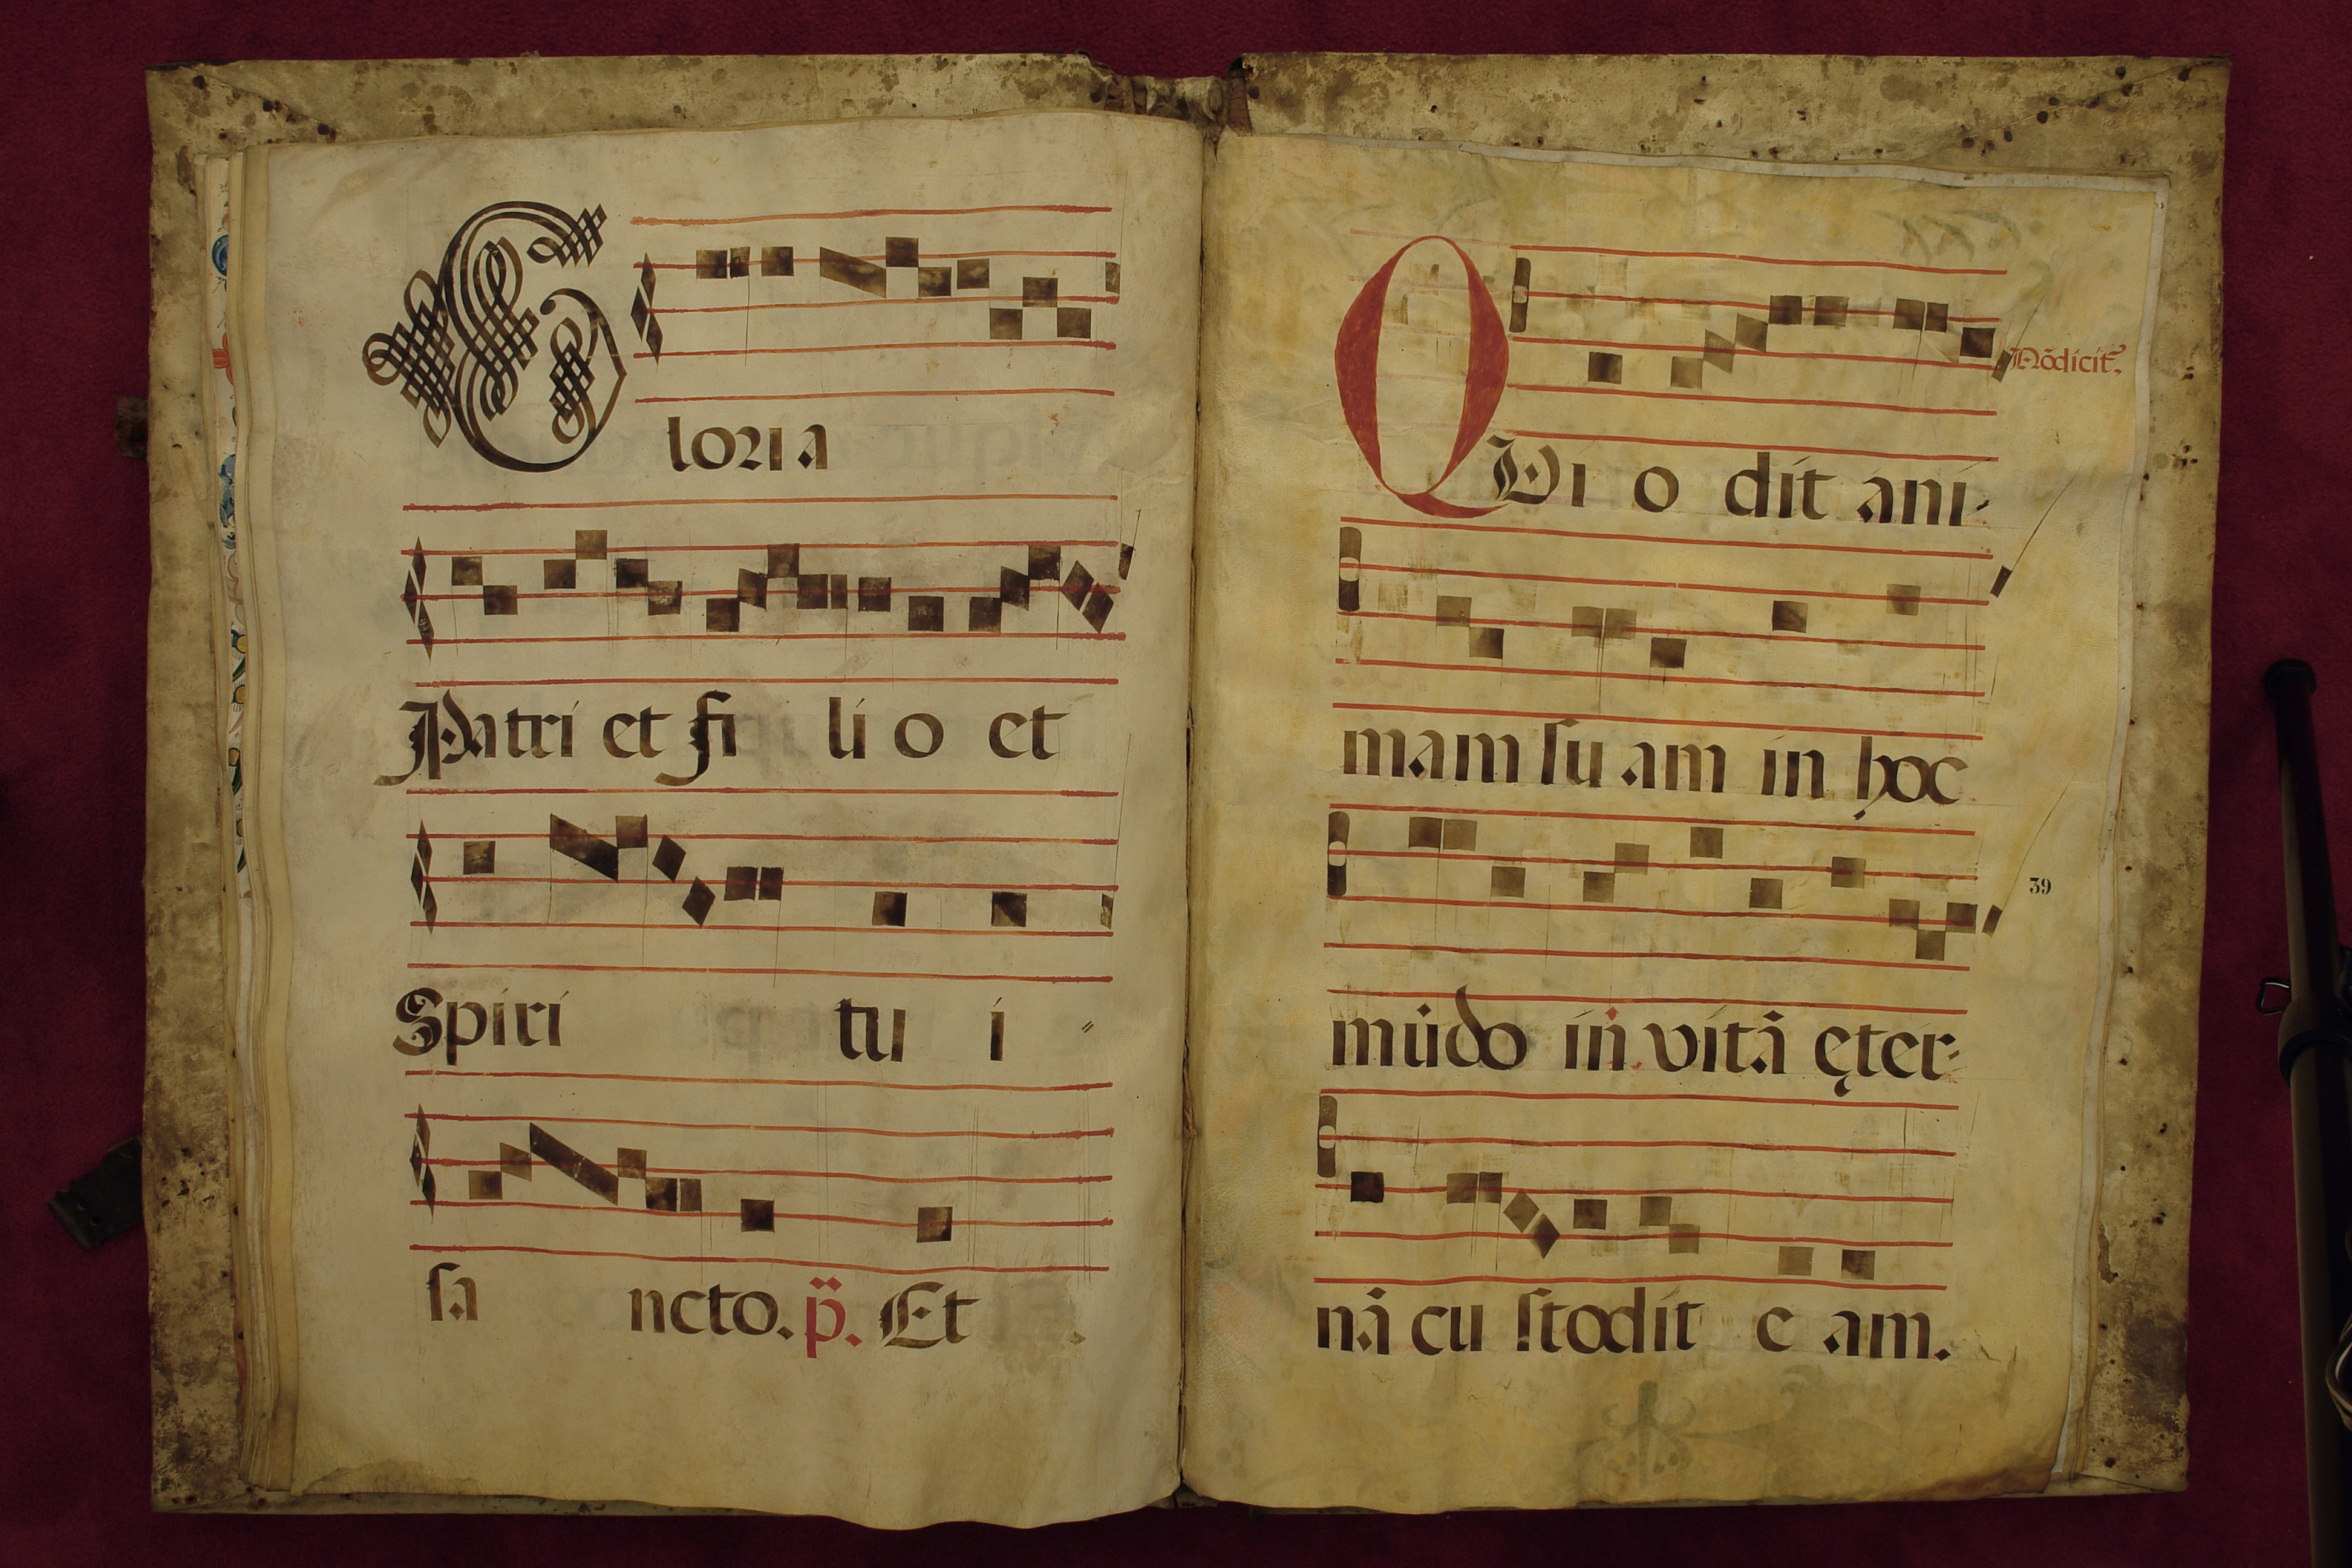 Gloria
Patri et fi li o et
Spiri tu i
sa ncto. p̈. Et
QVi o dit ani-
Nõdicit̃.
mam ſu am in hoc
mũdo in vitã ęter-
39
nã cu ſtodit e am.